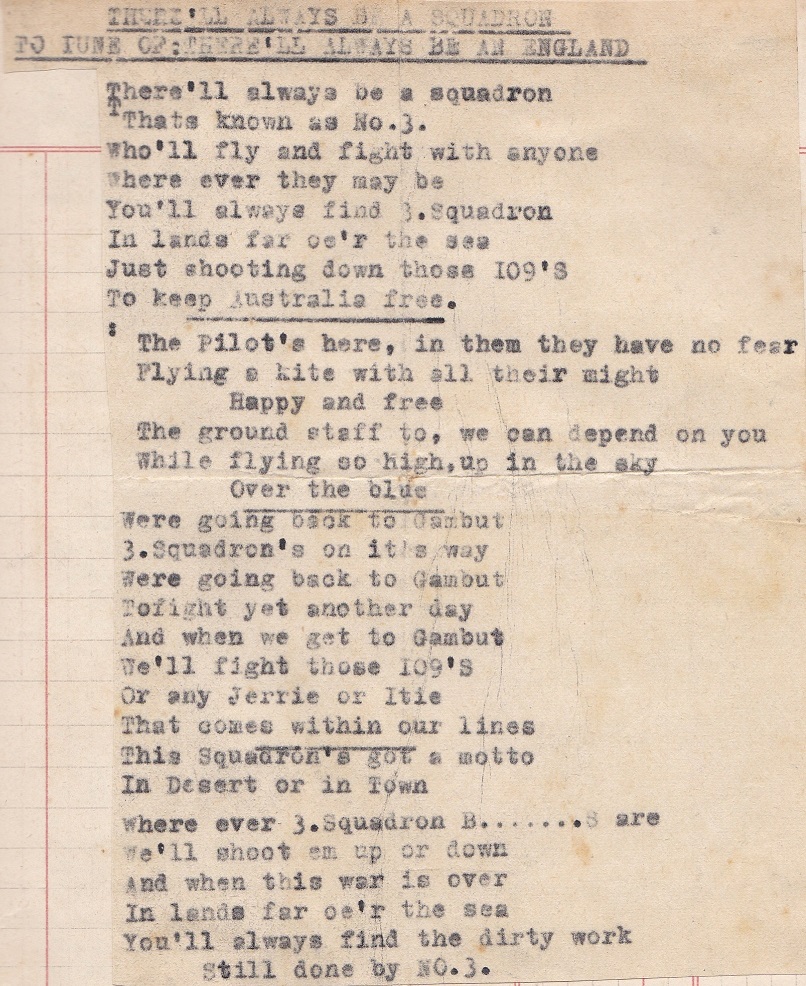 THERE'LL ALWAYS BE A SQUADRON
TO TUNE OF:THERE'LL ALWAYS BE AN ENGLAND
There'll always be a squadron
Thats known as No.3.
Who'll fly and fight with anyone
Where ever they may be
You'll always find 3.Squadron
In lands far oe'r the sea
Just shooting down those IO9'S
To keep Australia free.
The Pilot's here, in them they have no fear
Flying a kite with all their might
Happy and free
The ground staff to, we can depend on you
While flying so high,up in the sky
Over the blue
Were going back to Gambut
3.Squadron's on it's way
Were going back to Gambut
Tofight yet another day
And when we get to Gambut
We'll fight those IO9'S
Or any Jerrie or Itie
That comes within our lines
This Squadron's got a motto
In Desert or in Town
where ever 3.Squadron B.......S are
We'll shoot em up or down
And when this war is over
In lands far oe'r the sea
You'll always find the dirty work
Still done by NO.3.